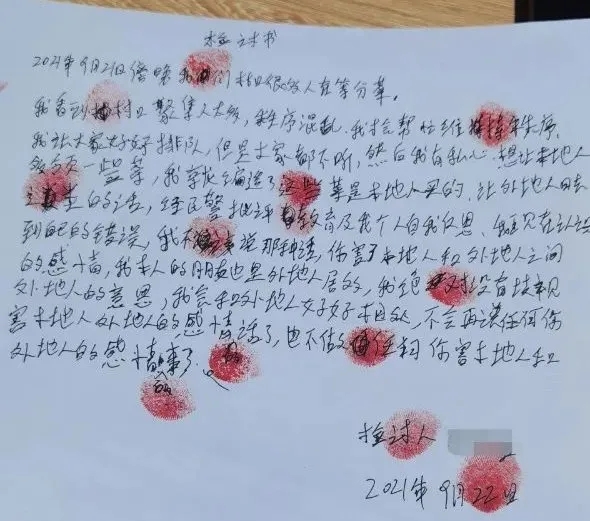 检讨书
2021年9月21日傍晚我们村口很多人在等分菜。
我看到村口聚集人太多，秩序混乱，我扌合帮忙维持秩序，
我让大家好好排队，但是大家都不听，然后我有私心，想让本地人
多分一些菜，我就编造了这些菜是本地人买的，让外地人回去
的话，经民警批评教育及我个人自我反思，现在认识
到自己的错误，我不该说那种话，伤害了本地人和外地人之间
的感情，我本人的朋友也是外地人居多，我绝对没有歧视
外地人的意思，我会和外地人好好相处，不会再说任何伤
害本地人外地人的感情话了，也不做任何伤害本地人和
外地人的感情事了。
检讨人
2021年9月22日